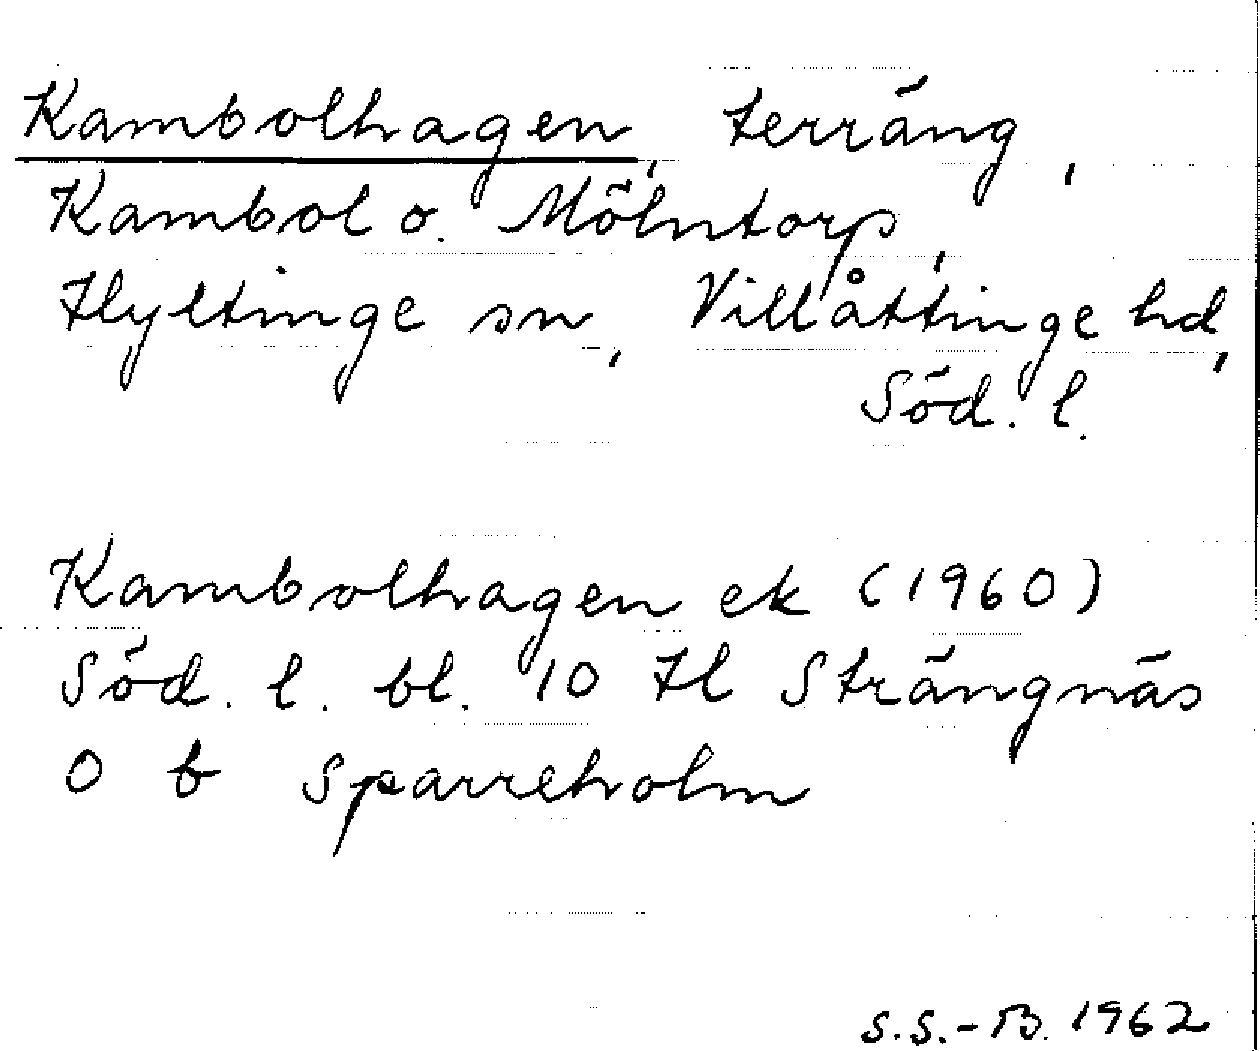 Kambolhagen, terräng,
Kambol o. Mölntorp,
Hyltinge sn, Villåttinge hd,
Söd. l.
Kambolhagen ek (1960)
Söd. l. bl. 10 Hl Strängnäs
O b Sparreholm
S.S.-B. 1962